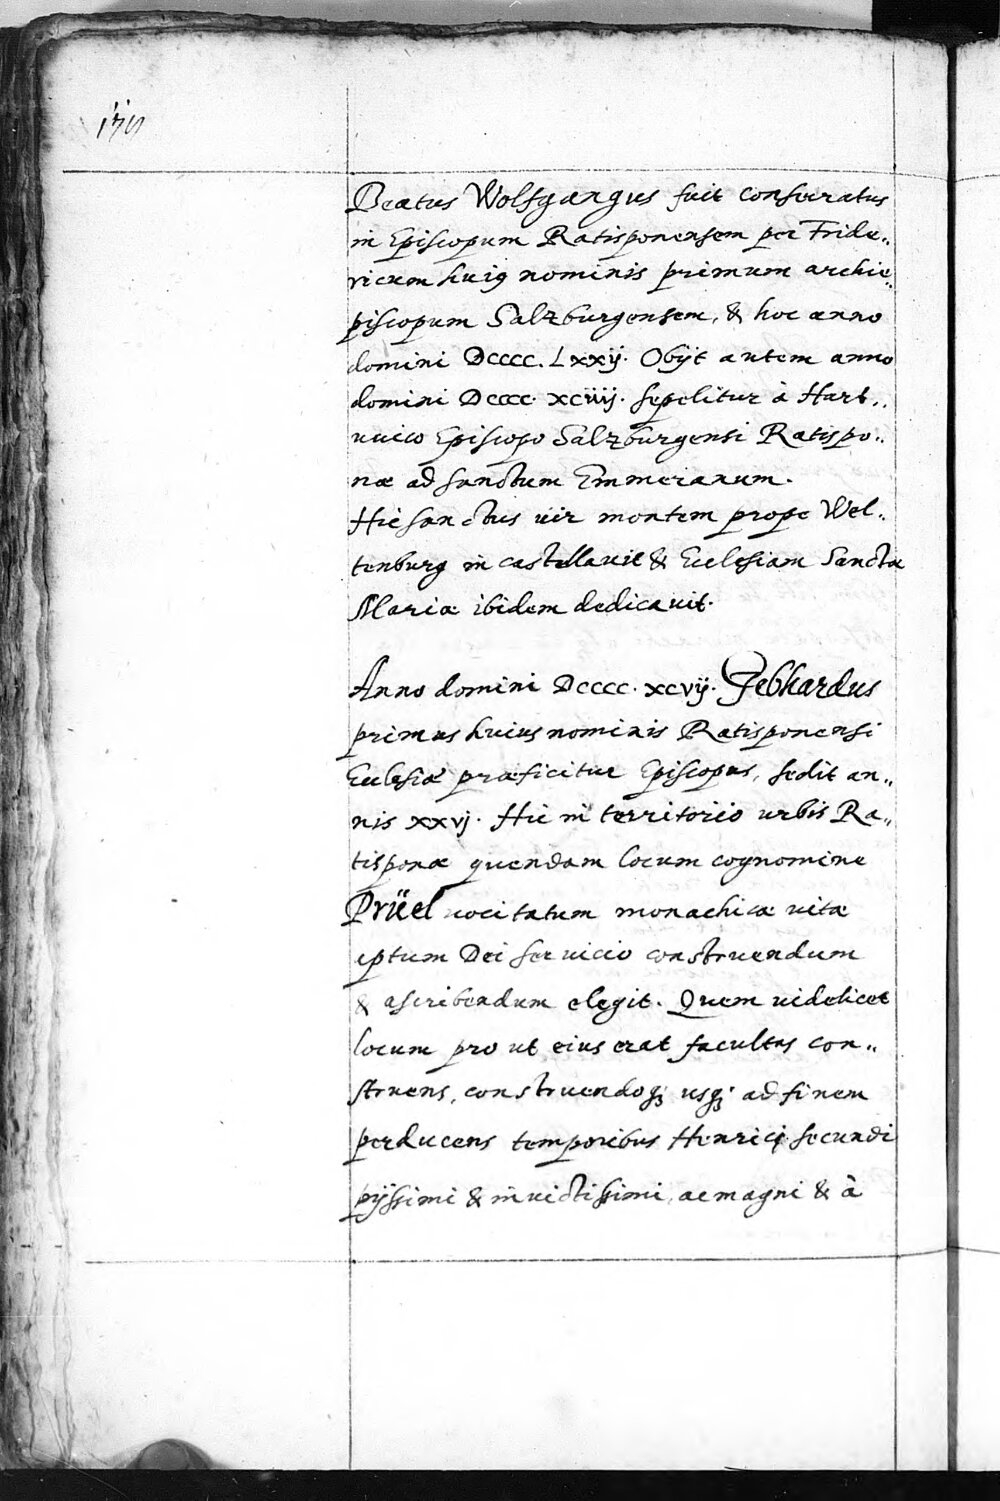 Beatus Wolfgangus fuit consecratus
in Episcopum Ratisponensem per Fride„
ricum huiꝰ nominis primum archie„
piscopum Salzburgensem, & hoc anno
domini Dcccc. Lxxij. Obijt autem anno
domini Dcccc. xciiij. sepelitur à Hart„
uuico Episcopo Salzburgensi Ratispo„
næ ad sanctum Emmeranum.
Hic sanctus uir montem prope Wel„
tenburg in castellauit & Ecclesiam Sanctæ
Mariæ ibidem dedicauit.
Anno domini Dcccc. xcvij. Gebhardus
primus huius nominis Ratisponensi
Ecclesiæ præficitur Episcopus, sedit an„
nis xxvj. Hic in territorio urbis Ra„
tisponæ quendam locum cognomine
Prüel uocitatum monachicæ uitæ
aptum Dei seruicio construendum
& ascribendum elegit. Quem uidelicet
locum pro ut eius erat facultas con„
struens, construendoqꝫ usqꝫ ad finem
perducens temporibus Henrici secundi
pijssimi & inuictissimi, ac magni & à